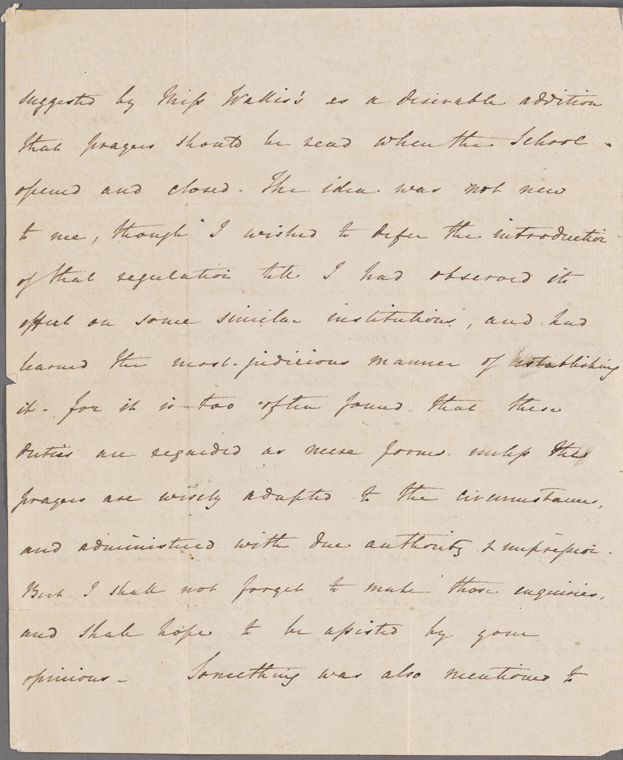 suggested by Miss Wallis's as a desirable addition
that prayers should be read when the School
opened and closed. The idea was not new
to me, though I wished to defer the introduction
of that regulation till I had observed its
effect on some similar institutions, and had
learned the most judicious manner of establishing
it - for it is too often found that these
duties are regarded as mere forms unless the
prayers are wisely adapted to the circumstances,
and administered with due authority & impression.
But I shall not forget to make those enquiries,
and shall hope to be assisted by your
opinions - Something was also mentioned to